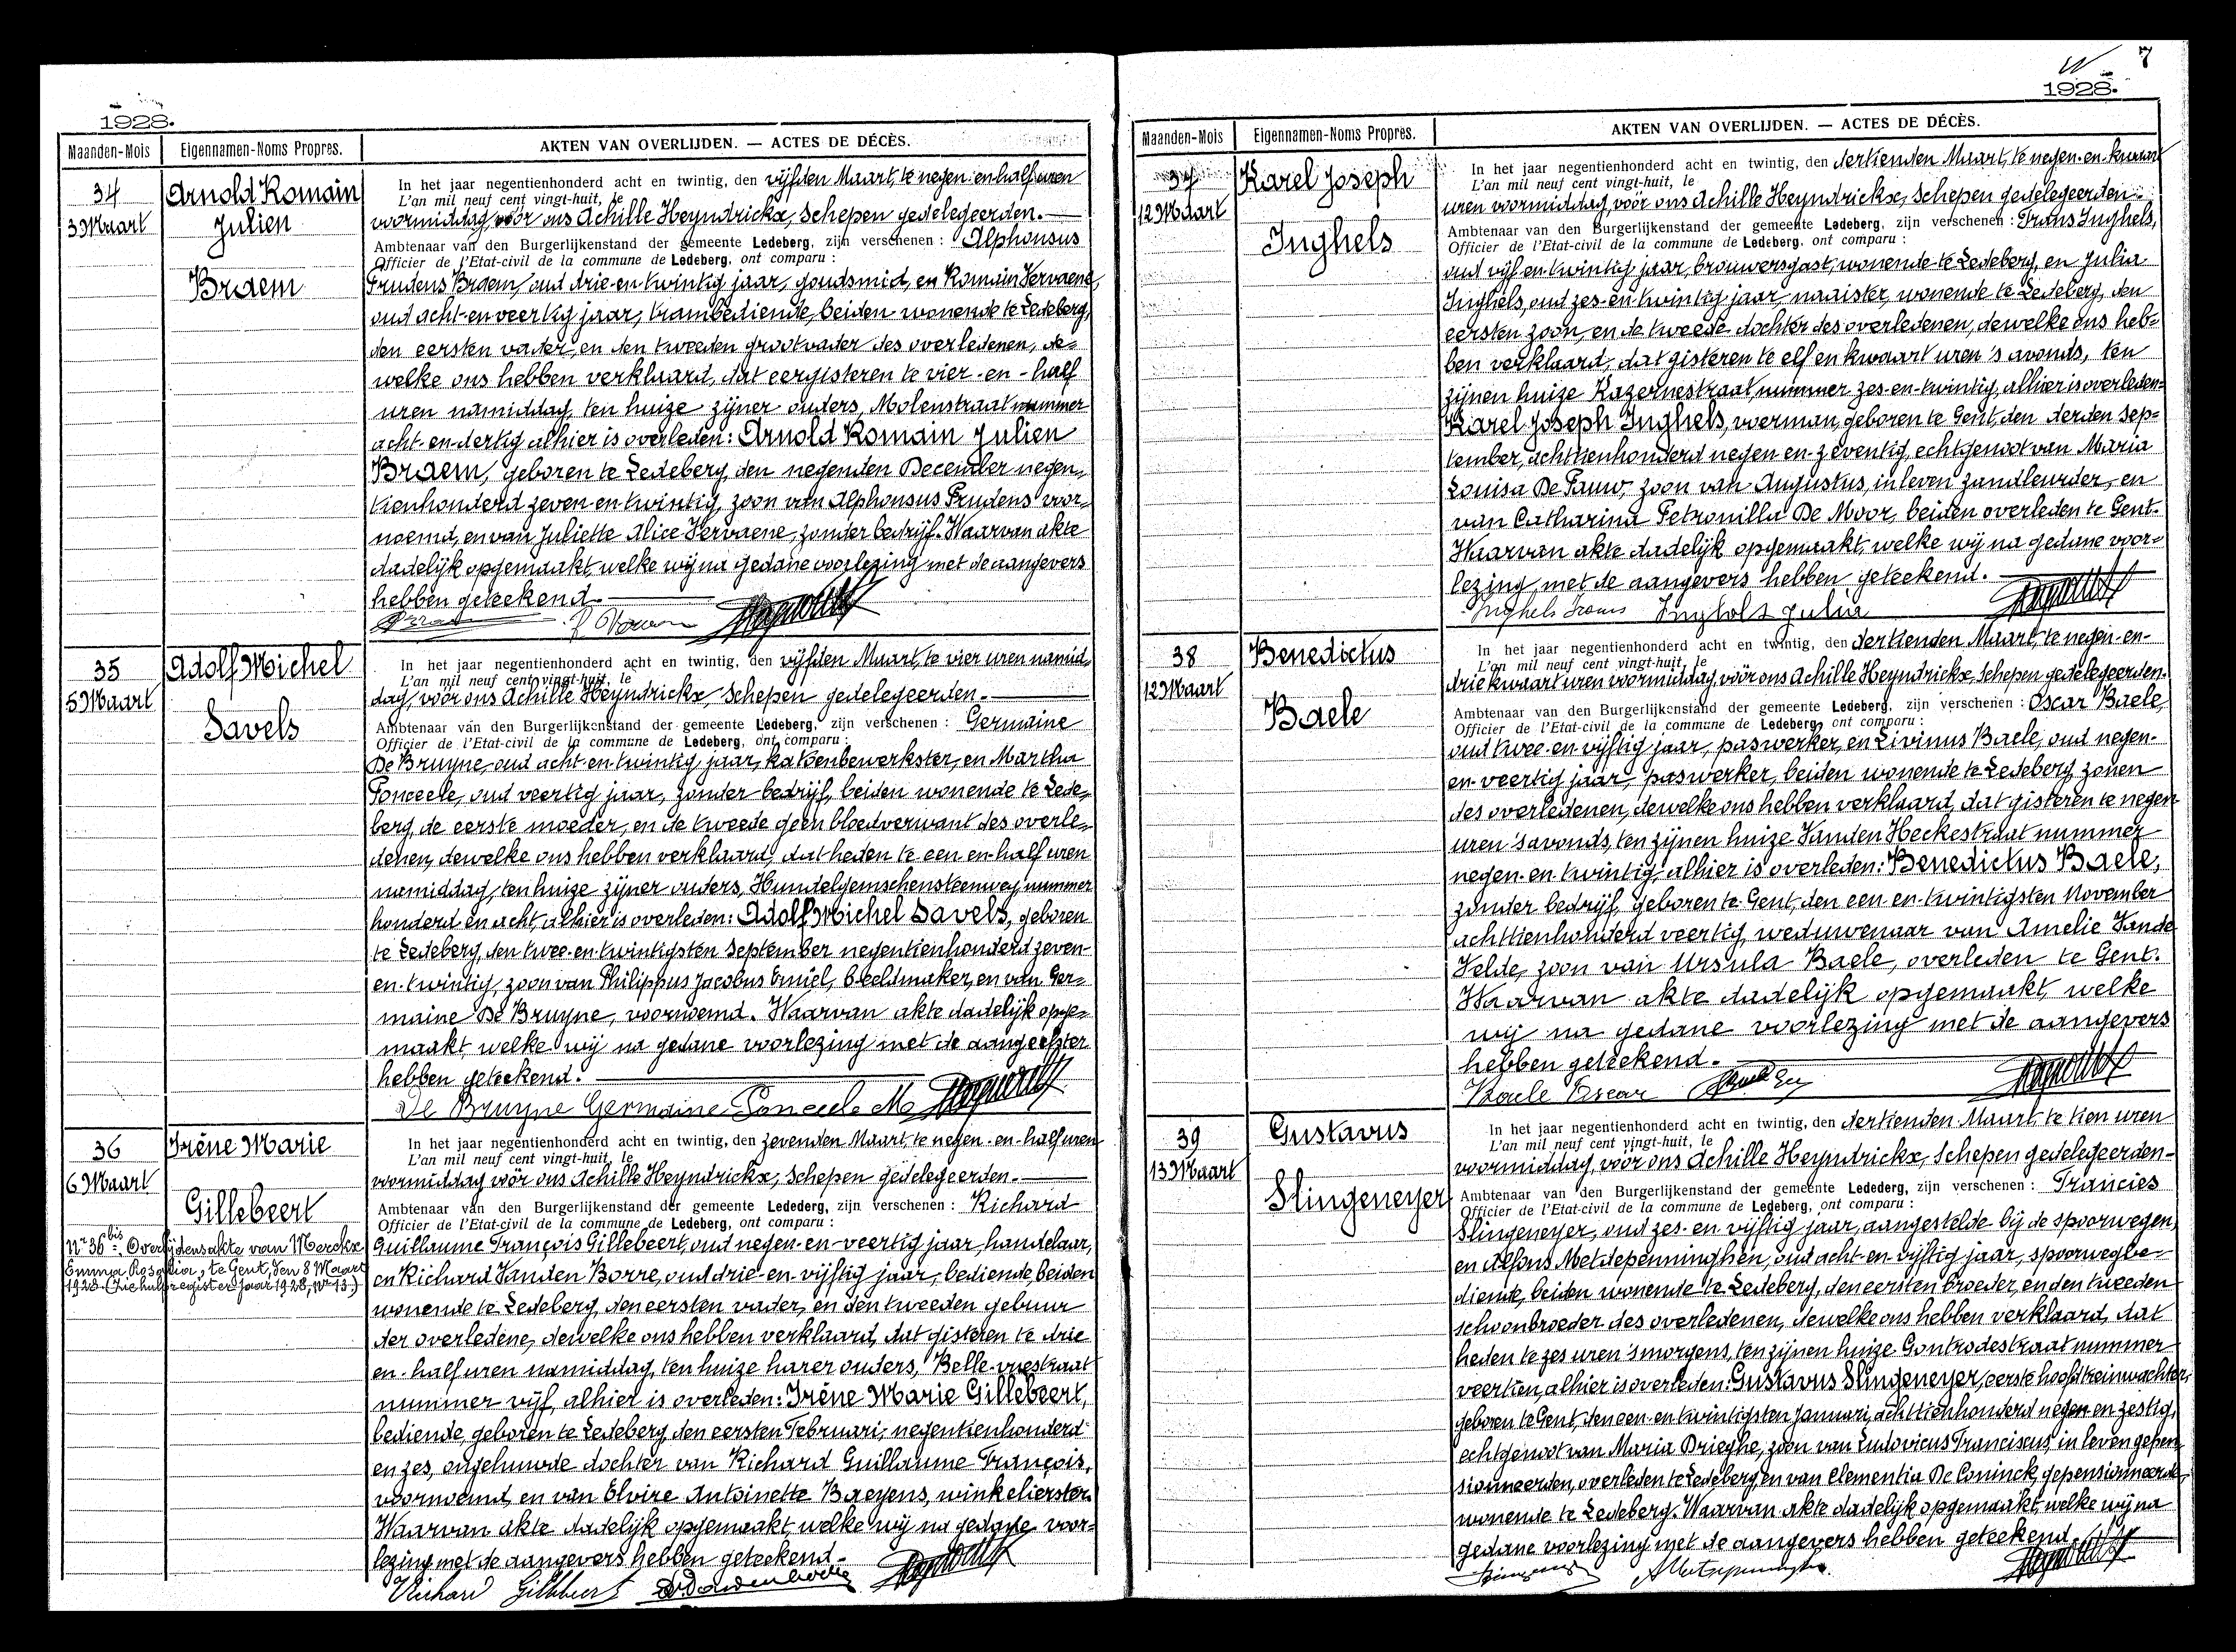 1928.
Maanden-Mois Eigennamen-Noms Propres. AKTEN VAN OVERLIJDEN. — ACTES DE DÉCÈS.
34
3 Maart
Arnold Romain
Julien
Braem
In het jaar negentienhonderd acht en twintig, den vijfden Maart, te negen-en-half uren
L'an mil neuf cent vingt-huit, le
voormiddag, vóór ons Achille Heyndrickx, Schepen gedelegeerden.
Ambtenaar van den Burgerlijkenstand der gemeente Ledeberg, zijn verschenen : Alphonsus
Officier de l'Etat-civil de la commune de Ledeberg, ont comparu :
Prudens Braem, oud drie-en-twintig jaar, goudsmid, en Romain Vervaene,
oud acht-en-veertig jaar, trambediende, beiden wonende te Ledeberg,
den eersten vader, en den tweeden grootvader des overledenen, de=
welke ons hebben verklaard, dat eergisteren te vier-en-half
uren namiddag, ten huize zijner ouders, Molenstraat nummer
acht-en-dertig alhier is overleden: Arnold Romain Julien
Braem, geboren te Ledeberg, den negenden December negen=
tienhonderd zeven-en-twintig, zoon van Alphonsus Prudens voor=
noemd, en van Juliette Alice Vervaene, zonder bedrijf. Waarvan akte
dadelijk opgemaakt, welke wij na gedane voorlezing met de aangevers
hebben geteekend.
35
5 Maart
Adolf Michel
Savels
In het jaar negentienhonderd acht en twintig, den vijfden Maart, te vier uren namid=
L'an mil neuf cent vingt-huit, le
dag, vóór ons Achille Heyndrickx, Schepen gedelegeerden.
Ambtenaar van den Burgerlijkenstand der gemeente Ledeberg, zijn verschenen : Germaine
Officier de l'Etat-civil de la commune de Ledeberg, ont comparu :
De Bruyne, oud acht-en-twintig jaar, katoenbewerkster, en Martha
Ponceele, oud veertig jaar, zonder bedrijf, beiden wonende te Lede=
berg, de eerste moeder, en de tweede geen bloedverwant des overle=
denen, dewelke ons hebben verklaard, dat heden te een-en-half uren
namiddag, ten huize zijner ouders, Hundelgemschensteenweg nummer
honderd en acht, alhier is overleden: Adolf Michel Savels, geboren
te Ledeberg, den twee-en-twintigsten September negentienhonderd zeven-
en-twintig, zoon van Philippus Jacobus Emiel, beeldmaker, en van Ger=
maine De Bruyne, voornoemd. Waarvan akte dadelijk opge=
maakt, welke wij na gedane voorlezing met de aangeefster
hebben geteekend.
De Bruyne Germaine Ponceele M
36
6 Maart
Irêne Marie
Gillebeert
Nr 36 bis. Overlijdensakte van Merckx
Emma Rosalia, te Gent, den 8 Maart
1928. (Zie hulpregister jaar 1928, Nr 13.)
In het jaar negentienhonderd acht en twintig, den zevenden Maart, te negen-en-half uren
L'an mil neuf cent vingt-huit, le
voormiddag vóór ons Achille Heyndrickx, Schepen gedelegeerden.
Ambtenaar van den Burgerlijkenstand der gemeente Ledederg, zijn verschenen : Richard
Officier de l'Etat-civil de la commune de Ledeberg, ont comparu :
Guillaume François Gillebeert, oud negen-en-veertig jaar, handelaar,
en Richard Vanden Borre, oud drie-en-vijftig jaar, bediende, beiden
wonende te Ledeberg, den eersten vader, en den tweeden gebuur
der overledene, dewelke ons hebben verklaard, dat gisteren te drie
en-half uren namiddag, ten huize harer ouders, Belle-vuestraat
nummer vijf, alhier is overleden: Irêne Marie Gillebeert,
bediende, geboren te Ledeberg, den eersten Februari, negentienhonderd
en zes, ongehuwde dochter van Richard Guillaume François,
voornoemd, en van Elvire Antoinette Baeyens, winkelierster.
Waarvan akte dadelijk opgemaakt, welke wij na gedane voor=
lezing met de aangevers hebben geteekend.
Richard Gillebeert
7
1928.
Maanden-Mois Eigennamen-Noms Propres. AKTEN VAN OVERLIJDEN. — ACTES DE DÉCÈS.
37
12 Maart
Karel Joseph
Inghels
In het jaar negentienhonderd acht en twintig, den dertienden Maart, te negen-en-kwaart
L'an mil neuf cent vingt-huit, le
uren voormiddag, vóór ons Achille Heyndrickx, Schepen gedelegeerden.
Ambtenaar van den Burgerlijkenstand der gemeente Ledeberg, zijn verschenen : Frans Inghels,
Officier de l'Etat-civil de la commune de Ledeberg, ont comparu :
oud vijf-en-twintig jaar, brouwersgast, wonende te Ledeberg, en Julia
Inghels, oud zes-en-twintig jaar, naaister, wonende te Ledeberg, den
eersten zoon, en de tweede dochter des overledenen, dewelke ons heb=
ben verklaard, dat gisteren te elf en kwaart uren 's avonds, ten
zijnen huize Kazernestraat nummer zes-en-twintig, alhier is overleden=
Karel Joseph Inghels, voerman, geboren te Gent, den derden Sep=
tember, achttienhonderd negen-en-zeventig, echtgenoot van Maria
Louisa De Pauw, zoon van Augustus, in leven zandleurder, en
van Catharina Petronilla De Moor, beiden overleden te Gent.
Waarvan akte dadelijk opgemaakt, welke wij na gedane voor=
lezing met de aangevers hebben geteekend.
Inghels Frans Inghels Julia
38
12 Maart
Benedictus
Baele
In het jaar negentienhonderd acht en twintig, den dertienden Maart, te negen-en-
L'an mil neuf cent vingt-huit, le
drie kwaart uren voormiddag, vóór ons Achille Heyndrickx, Schepen gedelegeerden.
Ambtenaar van den Burgerlijkenstand der gemeente Ledeberg, zijn verschenen : Oscar Baele,
Officier de l'Etat-civil de la commune de Ledeberg, ont comparu :
oud twee-en-vijftig jaar, paswerker, en Livinus Baele, oud negen-
en-veertig jaar, paswerker, beiden wonende te Ledeberg, zonen
des overledenen, dewelke ons hebben verklaard, dat gisteren te negen
uren 's avonds, ten zijnen huize Vanden Heckestraat nummer
negen-en-twintig, alhier is overleden: Benedictus Baele,
zonder bedrijf, geboren te Gent, den een-en-twintigsten November
achttienhonderd veertig, weduwenaar van Amelie Vande
Velde, zoon van Ursula Baele, overleden te Gent.
Waarvan akte dadelijk opgemaakt, welke
wij na gedane voorlezing met de aangevers
hebben geteekend.
Baele Oscar
39
13 Maart
Gustavus
Slingeneyer
In het jaar negentienhonderd acht en twintig, den dertienden Maart, te tien uren
L'an mil neuf cent vingt-huit, le
voormiddag, vóór ons Achille Heyndrickx, Schepen gedelegeerden-
Ambtenaar van den Burgerlijkenstand der gemeente Ledederg, zijn verschenen : Francies
Officier de l'Etat-civil de la commune de Ledeberg, ont comparu :
Slingeneyer, oud zes-en-vijftig jaar, aangestelde bij de spoorwegen,
en Alfons Metdepenninghen, oud acht-en-vijftig jaar, spoorwegbe=
diende, beiden wonende te Ledeberg, den eersten broeder, en den tweeden
schoonbroeder des overledenen, dewelke ons hebben verklaard, dat
heden te zes uren 's morgens, ten zijnen huize Gontrodestraat nummer
veertien, alhier is overleden: Gustavus Slingeneyer, eerste hoofdtreinwachter,
geboren te Gent, den een-en-twintigsten Januari, achttienhonderd negen en zestig,
echtgenoot van Maria Drieghe, zoon van Ludovicus Franciscus, in leven gepen=
sionneerden, overleden te Ledeberg, en van Clementia De Coninck, gepensionneerde,
wonende te Ledeberg. Waarvan akte dadelijk opgemaakt, welke wij na
gedane voorlezing met de aangevers hebben geteekend.